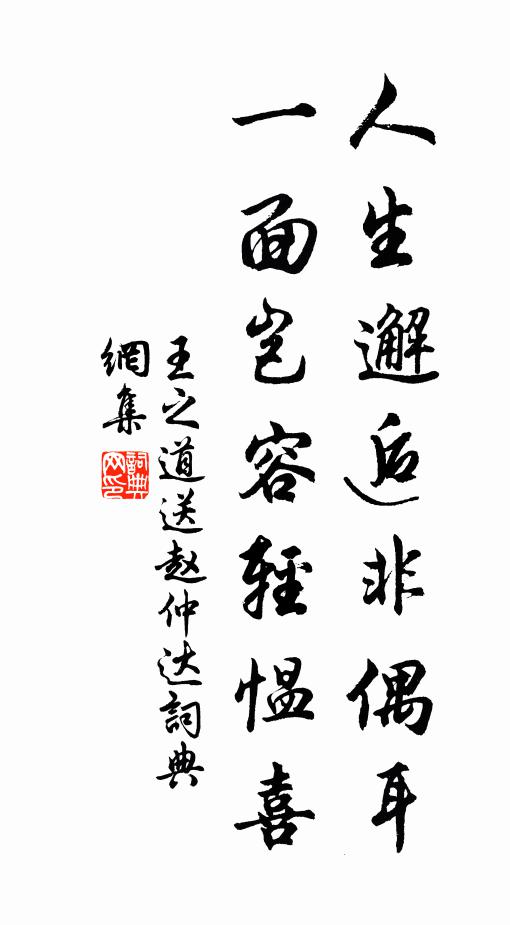 人生邂逅非偶耳
一面岂容輕愠喜
王之道送赵仲达詞典
網集
詞典网印